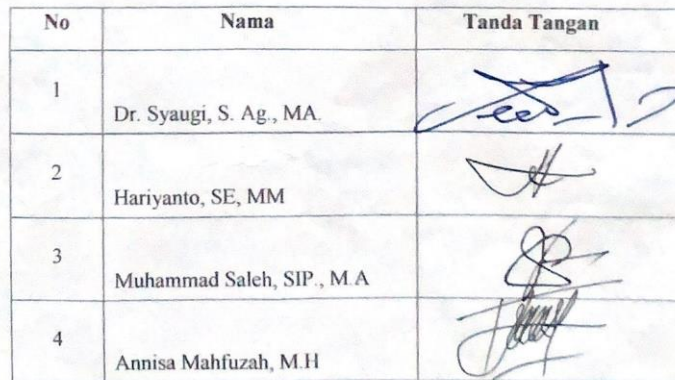 No Nama Tanda Tangan
1 Dr. Syaugi, S. Ag., MA.
2 Hariyanto, SE, MM
3 Muhammad Saleh, SIP., M.A
4 Annisa Mahfuzah, M.H